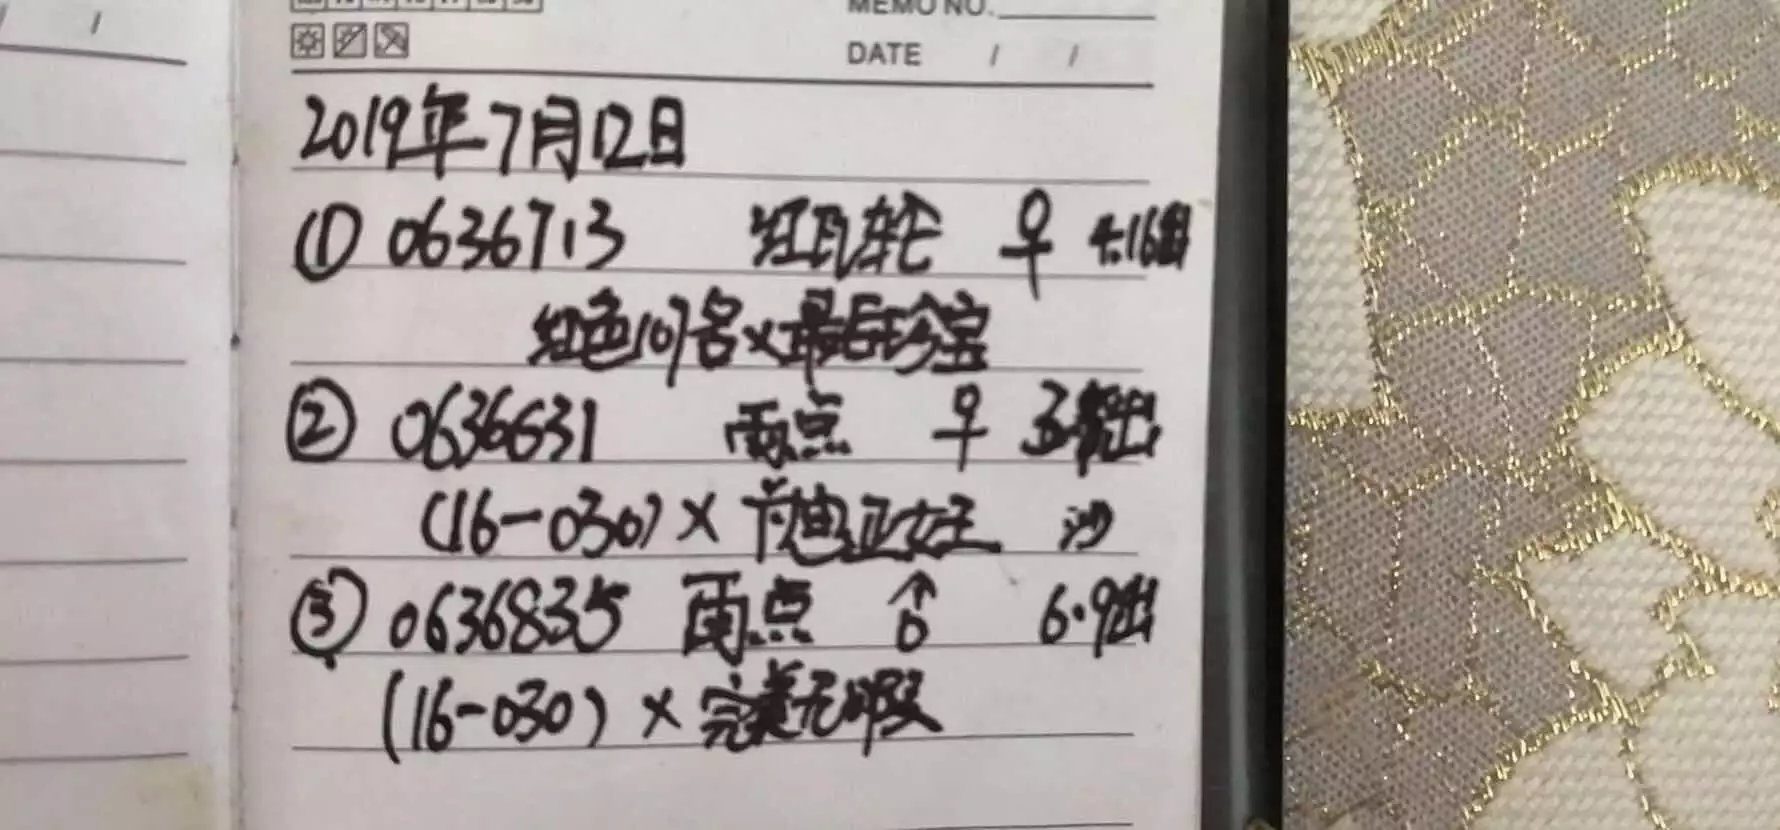 MEMO NO.
DATE / /
2019年7月12日
① 0636713 红瓦轮 ♀ 4.16出
红色107名×最后珍宝
② 0636631 雨点 ♀ 出
(16-030)×卡迪亚女王 沙
③ 0636835 雨点 ♂ 6.9出
(16-030)×完美无暇